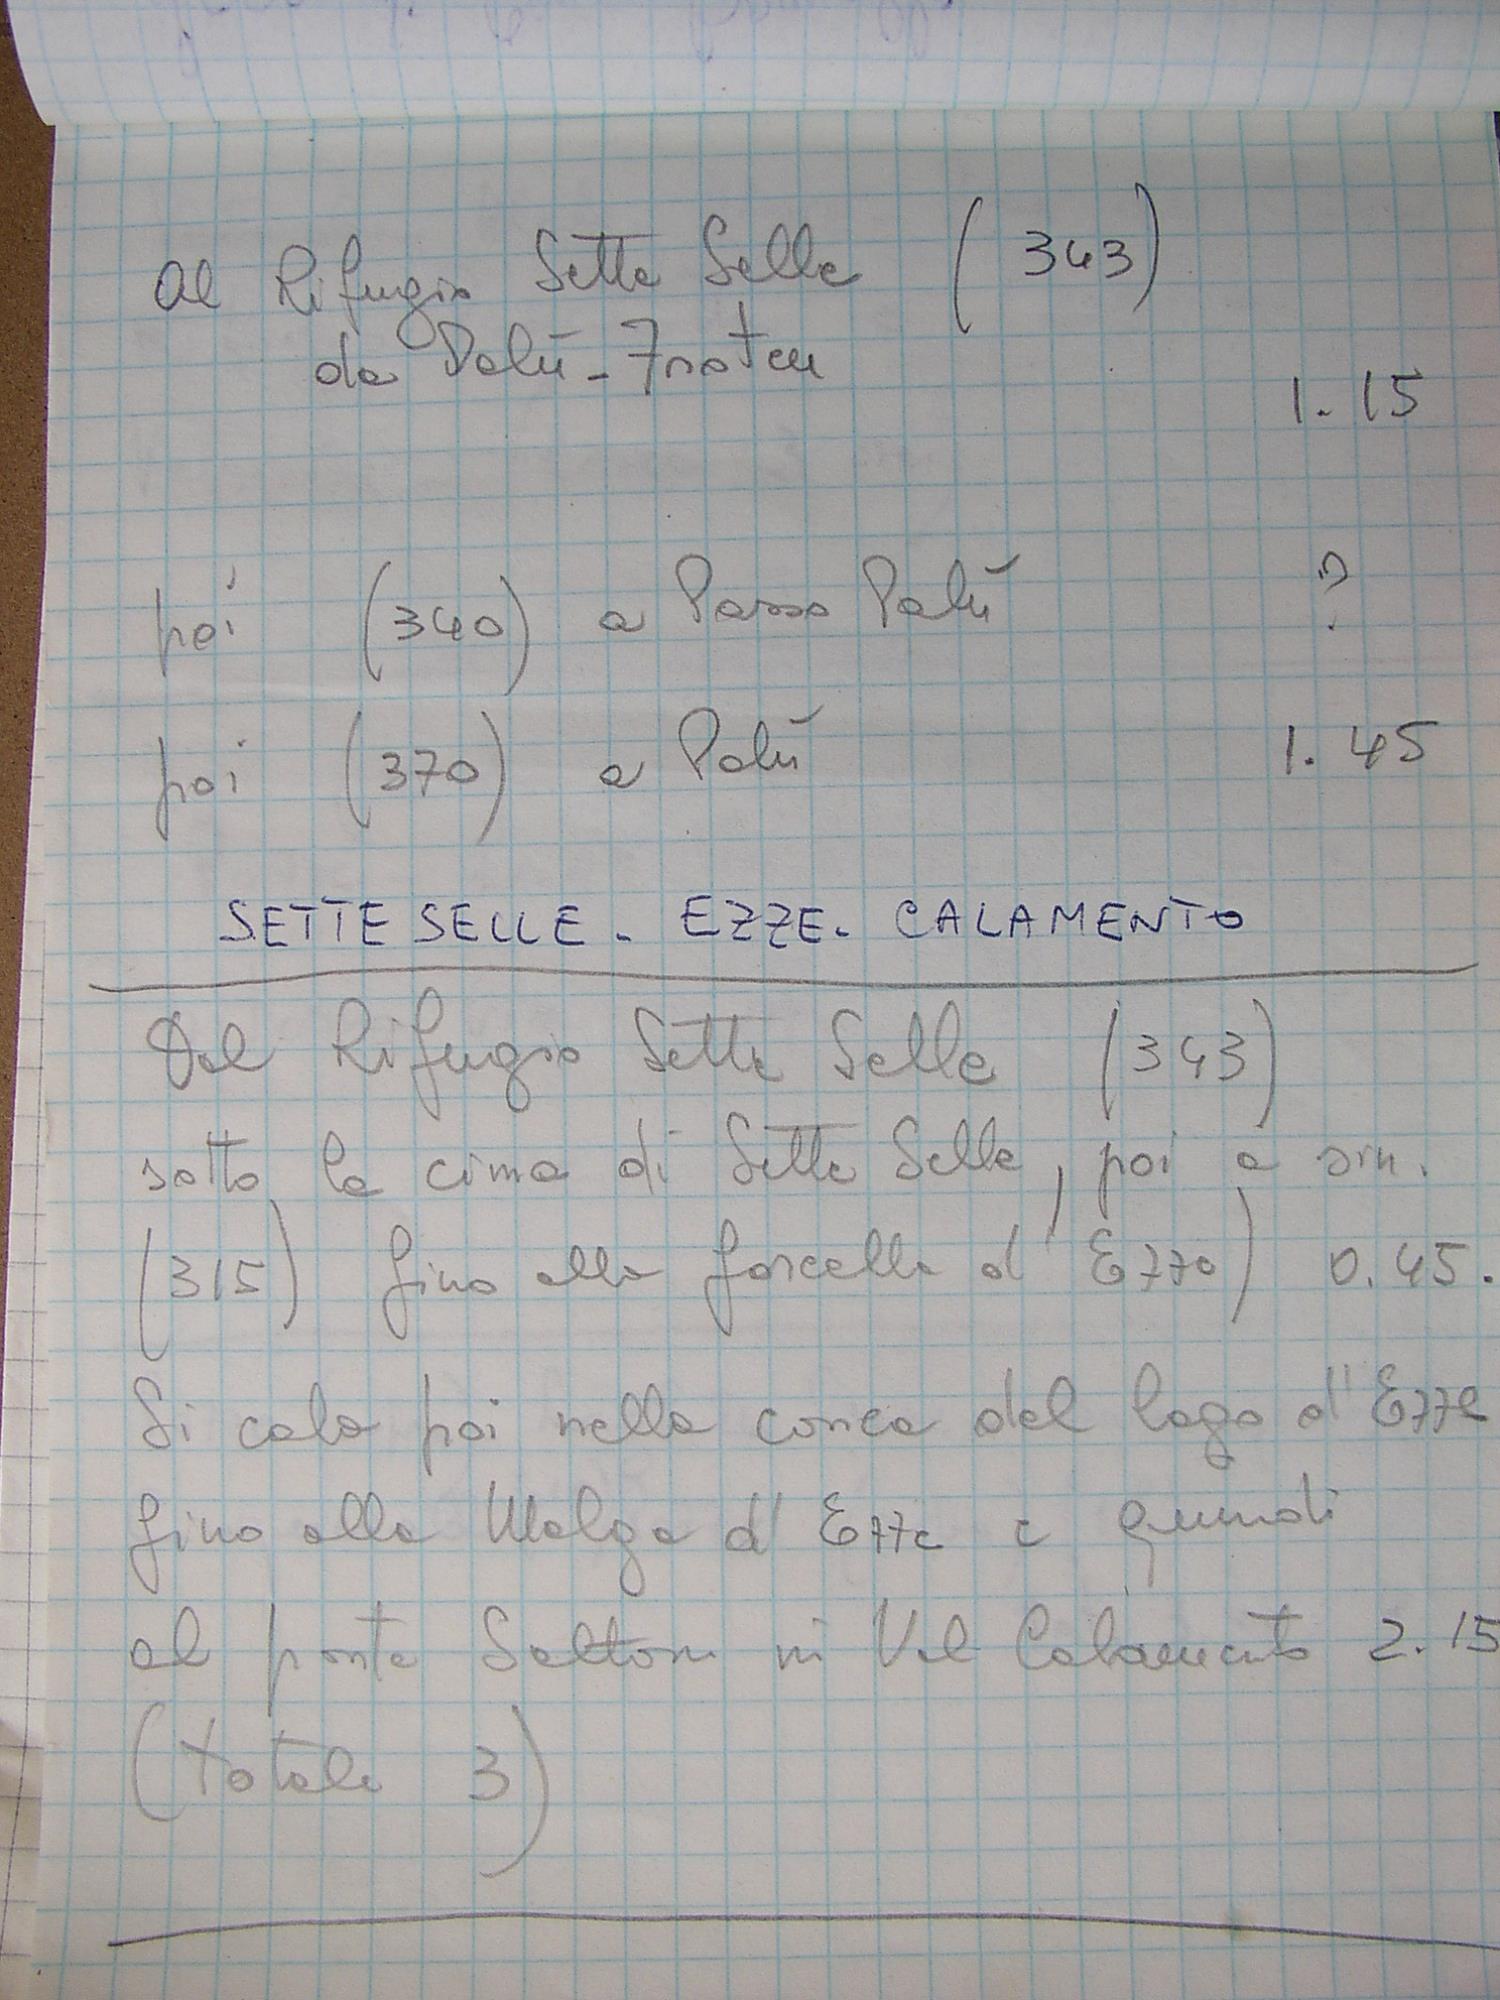 Al Rifugio Sette Selle (343)
da Palù - Frotten
1.15
poi (340) a Passo Palù ?
poi (370) a Palù 1.45
SETTE SELLE - EZZE - CALAMENTO
Dal Rifugio Sette Selle (343)
sotto la cima di Sette Selle, poi a sin.
(315) fino alla forcella d'Ezze) 0.45.
Si cala poi nella conca del lago d'Ezze
fino alla Malga d'Ezze e quindi
al ponte Salton in Val Calamento 2.15
(totale 3)